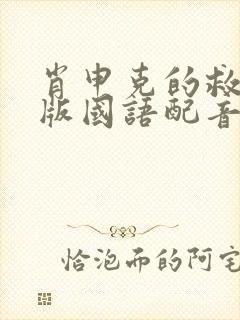 肖申克的救
版國語配音
恰泡而的阿宅